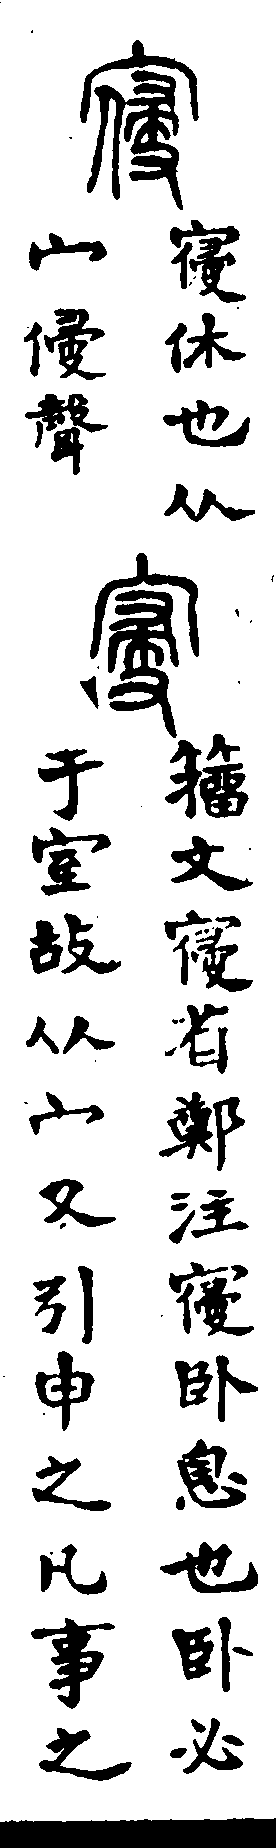 寑
寑休也从
宀侵聲
㝲
籀文寑省鄭注寑卧息也卧必
于室故从宀又引申之凡事之